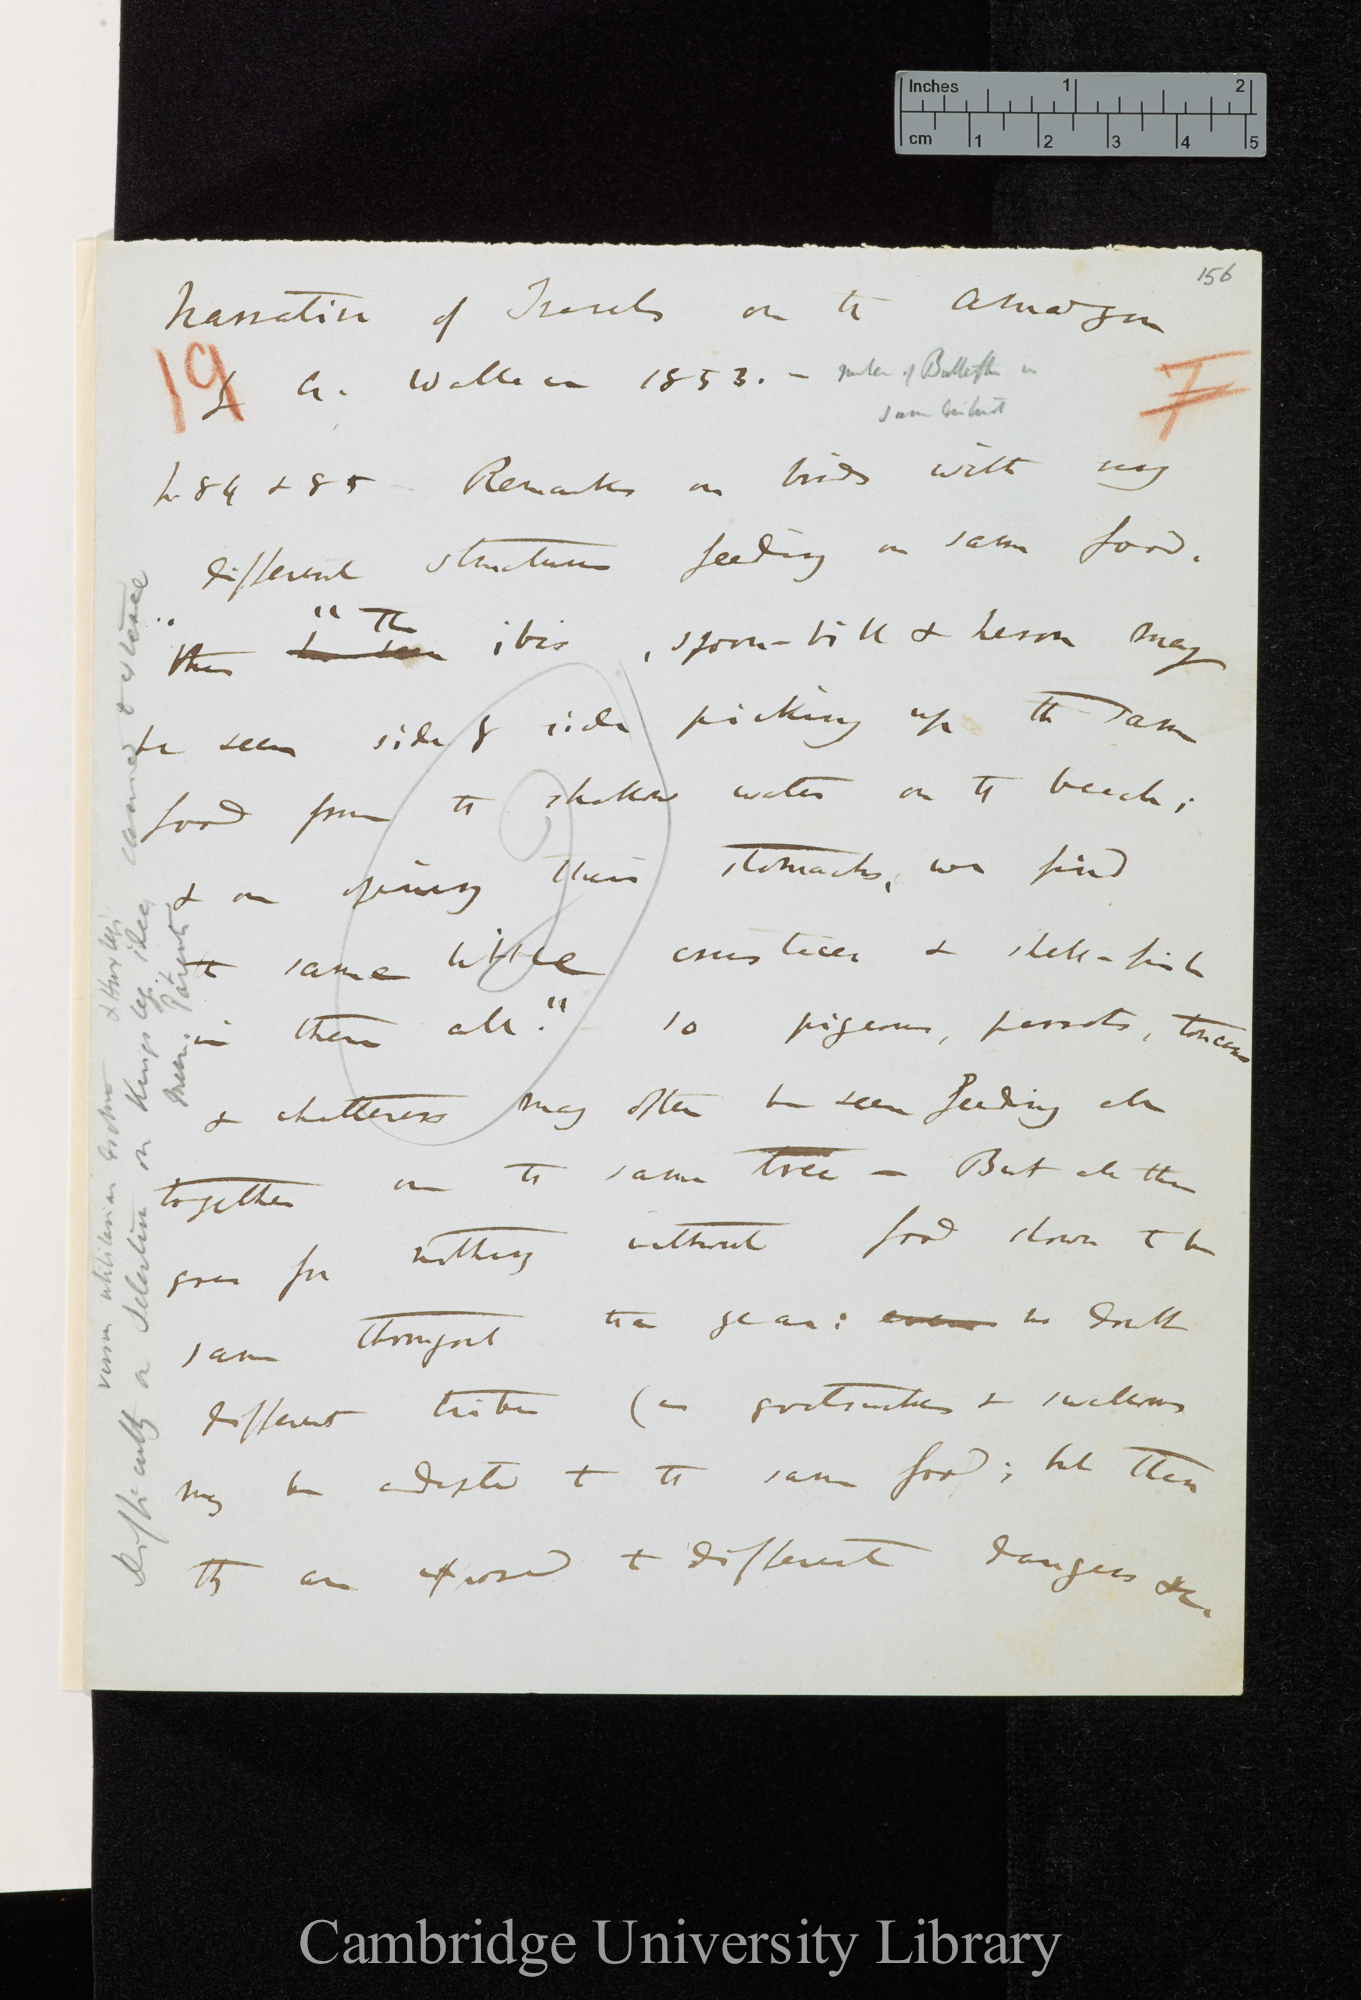 Inches 1 2
cm 1 2 3 4 5
156
Narrative of Travels on the Amazon
19
by A. Wallace 1853. — number of Butterflies in
same district
7
p. 84 & 85 — Remarks on birds with very
different structures feeding on same food.
"Thus "The ibis, spoon-bill & heron may
be seen side by side picking up the same
food from the shallow water on the beach;
& on opening their stomachs, we find
the same little crustacea & shell-fish
in them all." — so pigeons, parrots, toucans
& chatterers may often be seen feeding all
together on the same tree — But all this
goes for nothing without food shown to be
same throughout the year: even no doubt
different tribes (as goatsuckers & swallows
may be adapted to the same food; but then
they are exposed to different dangers &c.
Difficulty on Selection on Kingsley's idea, carried
& Huxley's
Parents
Cambridge University Library